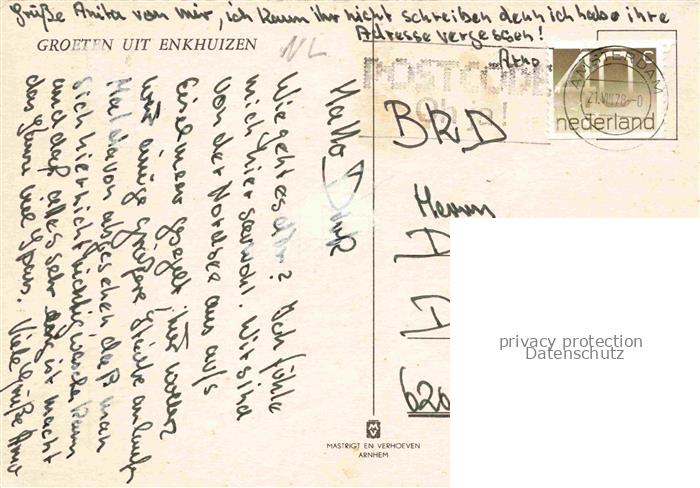 Grüße Anita von mir, ich kann ihr nicht schreiben denn ich habe ihre
Adresse vergessen!
Arno
GROETEN UIT ENKHUIZEN
NL
POSTCODE
40 c
nederland
AMSTERDAM
21.VIII.78
Hallo Dirk
Wie geht es dir? Ich fühle
mich hier sauwohl. Wir sind
von der Nordsee aus aufs
Eiselmeer gesegelt, hier wollen
wir einige größere Städte anlaufen
Mal davon abgesehen daß man
sich hier nicht richtig waschen kann
und daß alles sehr eng ist macht
das ganze viel Spass. Viele Grüße Arno
BRD
Herrn
620
MASTRIGT EN VERHOEVEN
ARNHEM
privacy protection
Datenschutz